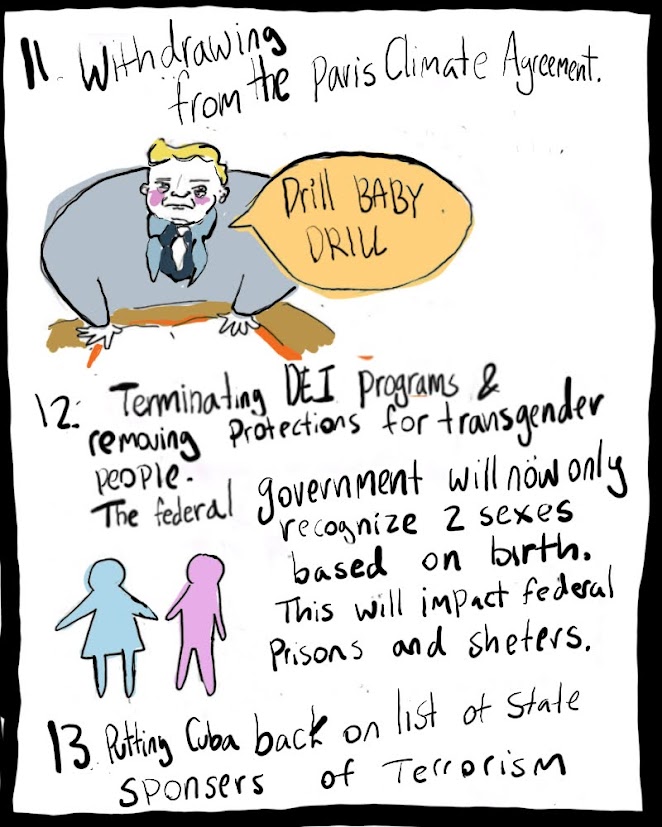 11. Withdrawing
from the Paris Climate Agreement.
Drill BABY
DRILL
12. Terminating DEI Programs &
removing Protections for transgender
people.
The federal government will now only
recognize 2 sexes
based on birth.
This will impact federal
Prisons and sheters.
13. Putting Cuba back on list of State
sponsers of Terrorism